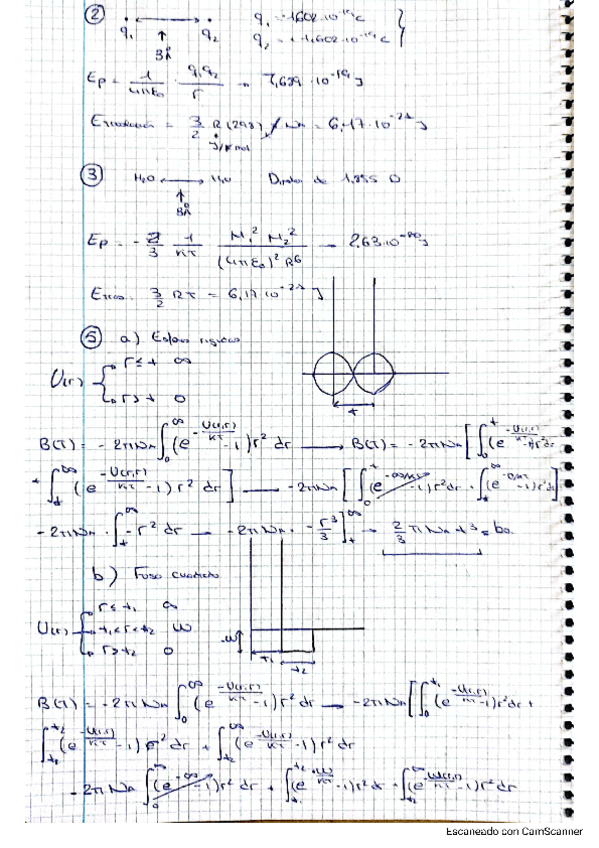 ② q₁ q₂ 3Å q₁ = -1,602·10⁻¹⁹ C
q₂ = +1,602·10⁻¹⁹ C
Ep = 1/(4πε₀) · q₁q₂/r → 7,639 · 10⁻¹⁹ J
= 3/2 R(298)/Nₐ = 6,17·10⁻²¹ J
J/K mol
③ H₂O ⟷ H₂O de 1,855 D
3Å
Ep = -2/3 1/KT μ₁² μ₂²/((4πε₀)² R⁶) → 2,63·10⁻²⁰ J
3/2 RT = 6,17·10⁻²¹ J
⑤ a) Esferas rígidas
U(r) { r ≤ σ ∞
r > σ 0
B(T) = -2πNₐ ∫₀^∞ (e^(-U(r,r)/KT) - 1) r² dr ⟶ B(T) = -2πNₐ [ ∫₀^σ (e^(-U(r,r)/KT) - 1) r² dr
+ ∫σ^∞ (e^(-U(r,r)/KT) - 1) r² dr ] ⟶ -2πNₐ [ ∫₀^σ (e^(-∞/KT) - 1) r² dr + ∫σ^∞ (e^(-0/KT) - 1) r² dr ]
-2πNₐ · ∫σ^∞ -r² dr → -2πNₐ · -r³/3 ]σ^∞ → 2/3 πNₐ σ³ = b₀
b) Poso cuadrado
U(r) { r ≤ σ₁ ∞
σ₁ < r < σ₂ ω
r > σ₂ 0
-ω σ₁ σ₂
B(T) = -2πNₐ ∫₀^∞ (e^(-U(r,r)/KT) - 1) r² dr → -2πNₐ [ ∫₀^σ₁ (e^(-U(r,r)/KT) - 1) r² dr +
∫σ₁^σ₂ (e^(-U(r,r)/KT) - 1) r² dr + ∫σ₂^∞ (e^(-U(r,r)/KT) - 1) r² dr
-2πNₐ ∫₀ (e^(-∞) - 1) r² dr + ∫σ₁^σ₂ (e^(ω/KT) - 1) r² dr + ∫σ₂^∞ (e^(-U(r,r)/KT) - 1) r² dr
Escaneado con CamScanner